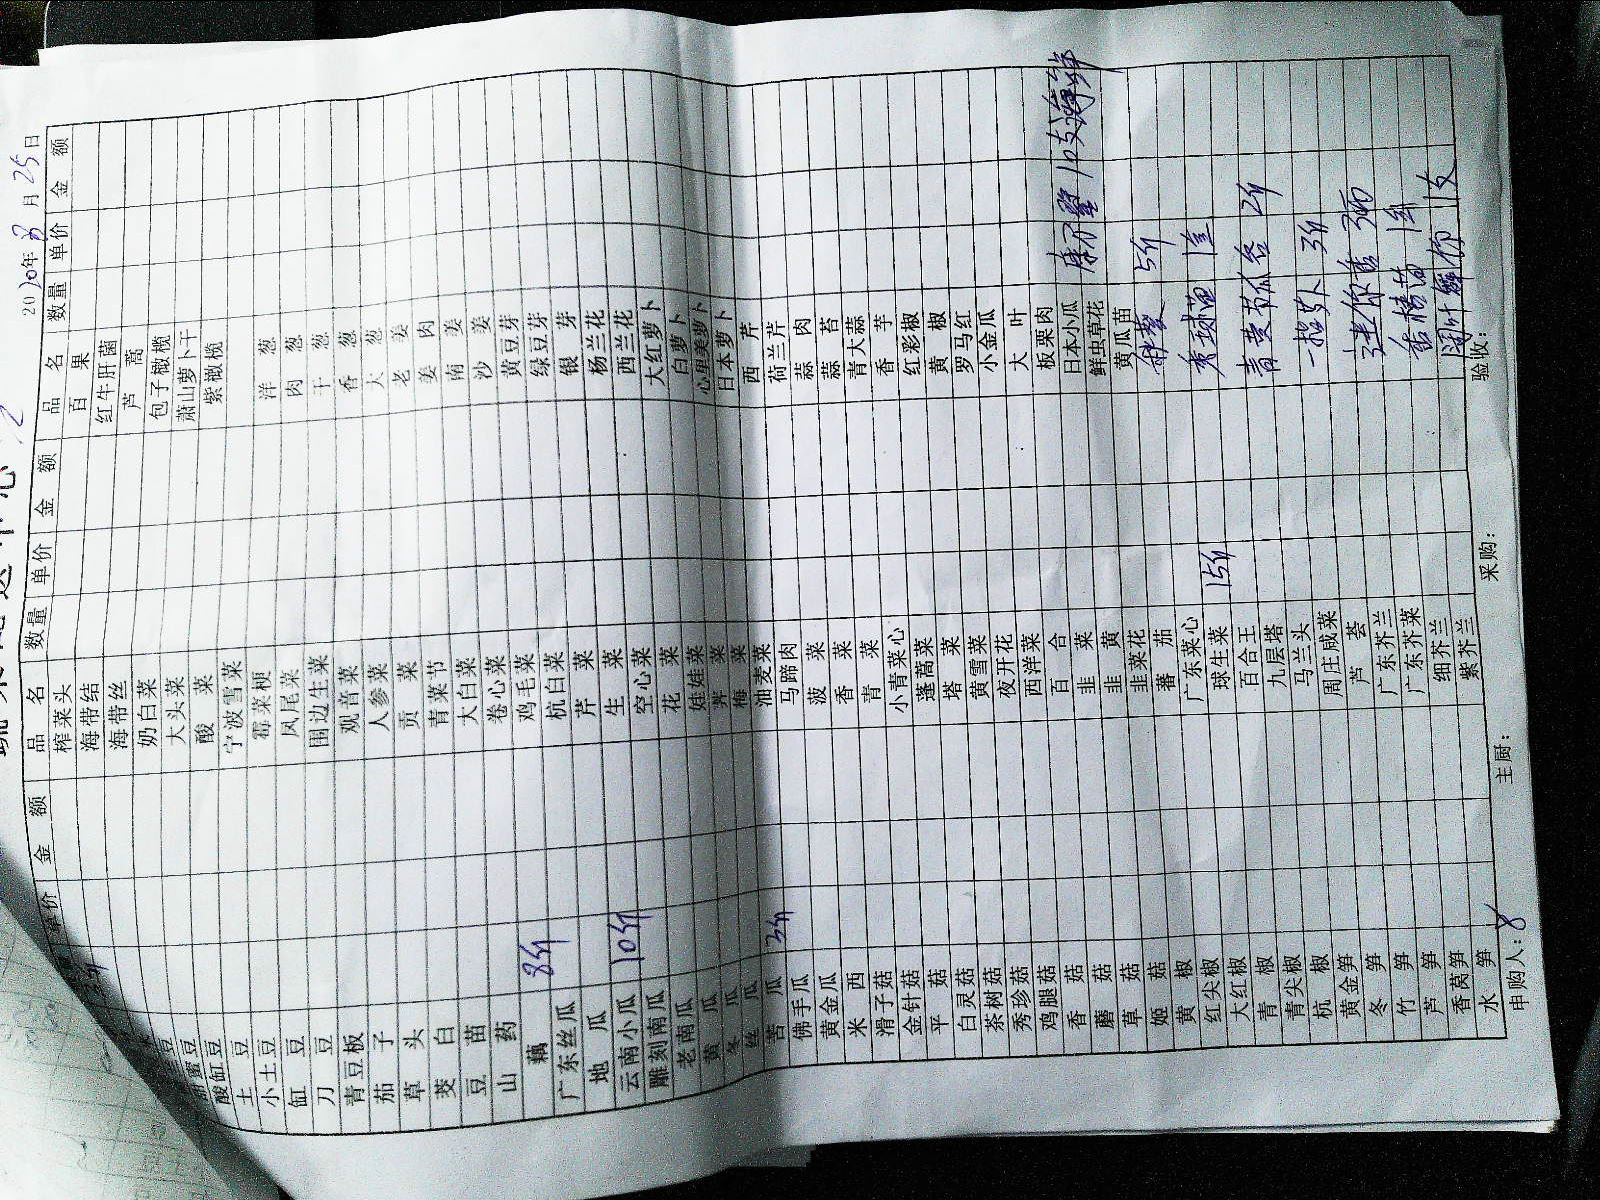 2020年 8 月 25 日
单价 金 额 品 名 数量 单价 金 额 品 名 数量 单价 金 额
榨菜头 百 果
海带结 红牛肝菌
海带丝 芦 蒿
奶白菜 包子橄榄
大头菜 萧山萝卜干
酸 菜 紫橄榄
甜蜜豆 宁波雪菜
酸缸豆 霉菜梗 洋 葱
土 豆 凤尾菜 肉 葱
小土豆 围边生菜 干 葱
缸 豆 观音菜 香 葱
刀 豆 人参菜 大 葱
青豆板 贡 菜 老 姜
茄 子 青菜节 姜 肉
草 头 大白菜 南 姜
茭 白 卷心菜 沙 姜
豆 苗 鸡毛菜 黄豆芽
山 药 杭白菜 绿豆芽
藕 8斤 芹 菜 银 芽
广东丝瓜 生 菜 杨兰花
地 瓜 空心菜 西兰花
云南小瓜 10斤 花 菜 大红萝卜
雕刻南瓜 娃娃菜 白萝卜
老南瓜 荠 菜 心里美萝卜
黄 瓜 梅 菜 日本萝卜
冬 瓜 油麦菜 西 芹
丝 瓜 马蹄肉 荷兰芹
苦 瓜 3斤 菠 菜 蒜 肉
佛手瓜 香 菜 蒜 苔
黄金瓜 青 菜 青大蒜
米 西 小青菜心 香 芋
滑子菇 蓬蒿菜 红彩椒
金针菇 塔 菜 黄 椒
平 菇 黄雪菜 罗马红
白灵菇 夜开花 小金瓜
茶树菇 西洋菜 大 叶
秀珍菇 百 合 板栗肉
鸡腿菇 韭 菜 日本小瓜
香 菇 韭 黄 鲜虫草花
蘑 菇 韭菜花 黄瓜苗
草 菇 蕃 茄 5斤
姬 菇 广东菜心
黄 椒 球生菜 15斤
红尖椒 百合王
大红椒 九层塔 2斤
青 椒 马兰头
青尖椒 周庄咸菜 3斤
杭 椒 芦 荟
黄金笋 广东芥兰
冬 笋 广东芥菜
竹 笋 细芥兰
芦 笋 紫芥兰
香莴笋
水 笋
申购人: 主厨: 采购: 验收: